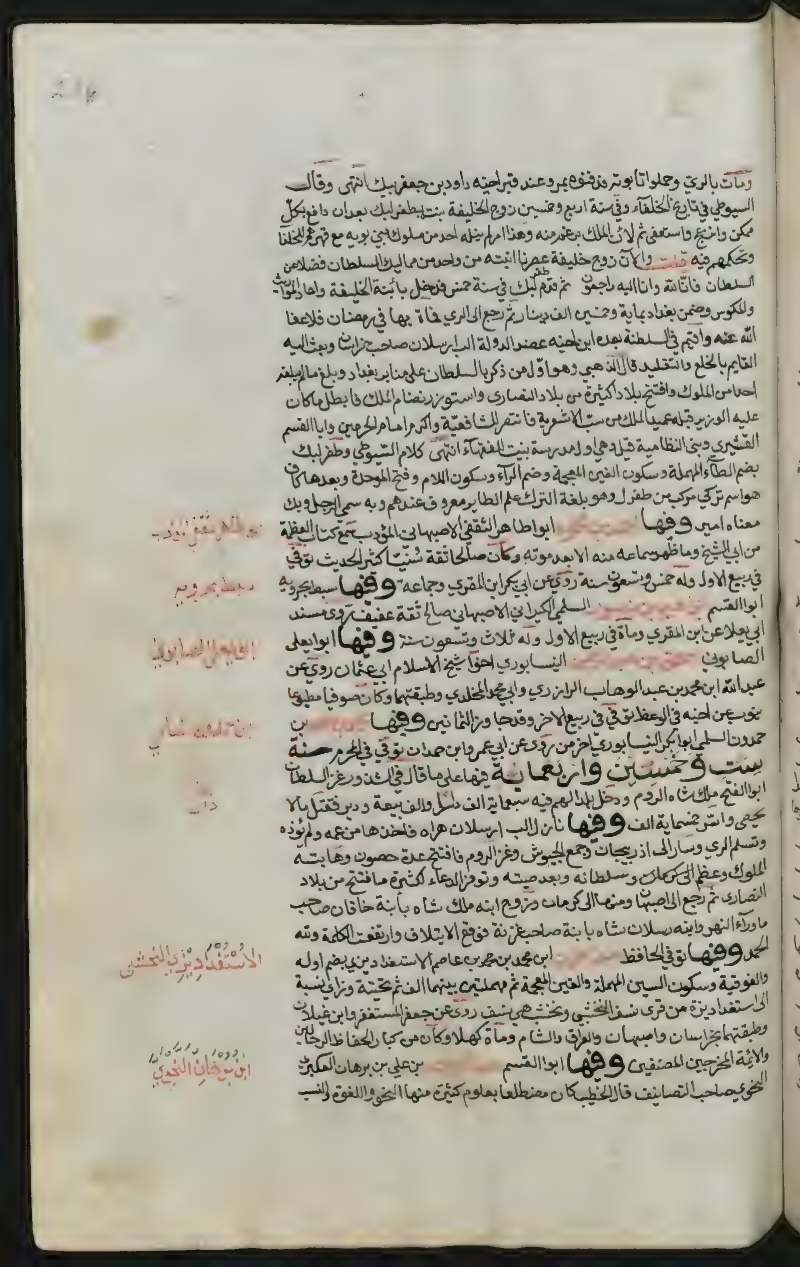 ومات بالري وحملوا تابوته فدفنوه بمرو عند قبر اخيه داود بن جعفر بيك انتهى وقال
السيوطي في تاريخ الخلفاء وفي سنة اربع وخمسين زوج الخليفة بنته لطغرلبك بعد ان دافع بكل
ممكن وانزعج واستعفى ثم لان لذلك برغم منه وهذا امر لم ينله احد من ملوك بني بويه مع قهرهم الخلفا
وتحكمهم فيهم قلت والآن زوج خليفة عصرنا ابنته من واحد من مماليك السلطان فضلا عن
السلطان فانا لله وانا اليه راجعون ثم قدم طغرلبك في سنة خمس فدخل بابنة الخليفة واعاد المواريث
والمكوس وضمن بغداد بماية وخمسين الف دينار ثم رجع الى الري فمات بها في رمضان فلا عفا
الله عنه واقيم في السلطنة بعده ابن اخيه عضد الدولة الب ارسلان صاحب خراسان وبعث اليه
القايم بالخلع والتقليد قال الذهبي وهو اول من ذكر بالسلطان على منابر بغداد وبلغ مالم يبلغه
احد من الملوك وافتتح بلادا كثيرة من بلاد النصارى واستوزر نظام الملك فابطل ما كان
عليه الوزير قبله عميد الملك من سب الاشعرية فانتصر للشافعية واكرم امام الحرمين وابا القسم
القشيري وبنى النظامية قيل وهي اول مدرسة بنيت للفقهاء انتهى كلام السيوطي وطغرلبك
بضم الطاء المهملة وسكون الغين المعجمة وضم الراء وسكون اللام وفتح الموحدة وبعدها كاف
هو اسم تركي مركب من طغرل وهو بلغة الترك علم لطاير معروف عندهم وبه سمي الرجل وبك
معناه امير وفيها ابو طاهر الثقفي الاصبهاني المؤدب سمع كتاب العظمة
من ابي الشيخ وما ظهر سماعه منه الا بعد موته وكان صالحا ثقة سنيا كثير الحديث توفي
في ربيع الاول وله خمس وتسعون سنة روى عن ابي بكر بن المقري وجماعة وفيها سبط بحرويه
ابو القسم السلمي الكبراني الاصبهاني صالح ثقة عفيف روى مسند
ابي يعلا عن ابن المقري ومات في ربيع الاول وله ثلاث وتسعون سنة وفيها ابو يعلى
الصابوني النيسابوري اخو شيخ الاسلام ابي عثمان روى عن
عبد الله ابن محمد بن عبد الوهاب الرازي وابي محمد المخلدي وطبقتهما وكان صوفيا مطبوعا
ينوب عن اخيه في الوعظ توفي في ربيع الاخر وقد جاوز الثمانين وفيها بن
حمدون السلمي ابو بكر النيسابوري اخر من روى عن ابي عمرو ابن حمدان توفي في المحرم سنة
ست وخمسين واربعماية فيها على ما قال في الشذور غزا السلطان
ابو الفتح ملك شاه الروم ودخل بلدا لهم فيه سبعماية الف دار والف بيعة ودير فقتل ما لا
يحصى واسر خمسماية الف وفيها نازل الب ارسلان هراه فاخذها من عمه ولم يؤذه
وتسلم الري وسار الى اذربيجان وجمع الجيوش وغزا الروم فافتتح عدة حصون وهابته
الملوك وعظم سلطانه وبعد صيته وتوفر الدعاء لكثرة ما فتح من بلاد
النصارى ثم رجع الى اصبهان ومنها الى كرمان وزوج ابنه ملك شاه بابنة خاقان صاحب
ماوراء النهر وابنه رسلان شاه بابنة صاحب غزنة فوقع الايتلاف وارتفعت الكلمة ولله
الحمد وفيها توفي الحافظ ابن محمد بن محمد بن عاصم الاستغداديزي بضم اوله
والفوقية وسكون السين المهملة والغين المعجمة ثم مهملتين بينهما الف ثم تحتية وزاي نسبة
الى استغداديزة من قرى نسف النخشبي ونخشب هي نسف روى عن جعفر المستغفر وابن غيلان
وطبقتهما بخراسان واصبهان والعراق والشام ومات كهلا وكان من كبار الحفاظ الرحالين
والائمة المخرجين المصنفين وفيها ابو القسم بن علي بن برهان العكبري
النحوي صاحب التصانيف قال الخطيب كان مضطلعا بعلوم كثيرة منها النحو واللغة والنسب
ابو طاهر الثقفي المؤدب
سبط بحرويه
ابو يعلى الصابوني
الاستغداديزي النخشبي
ابن برهان النحوي